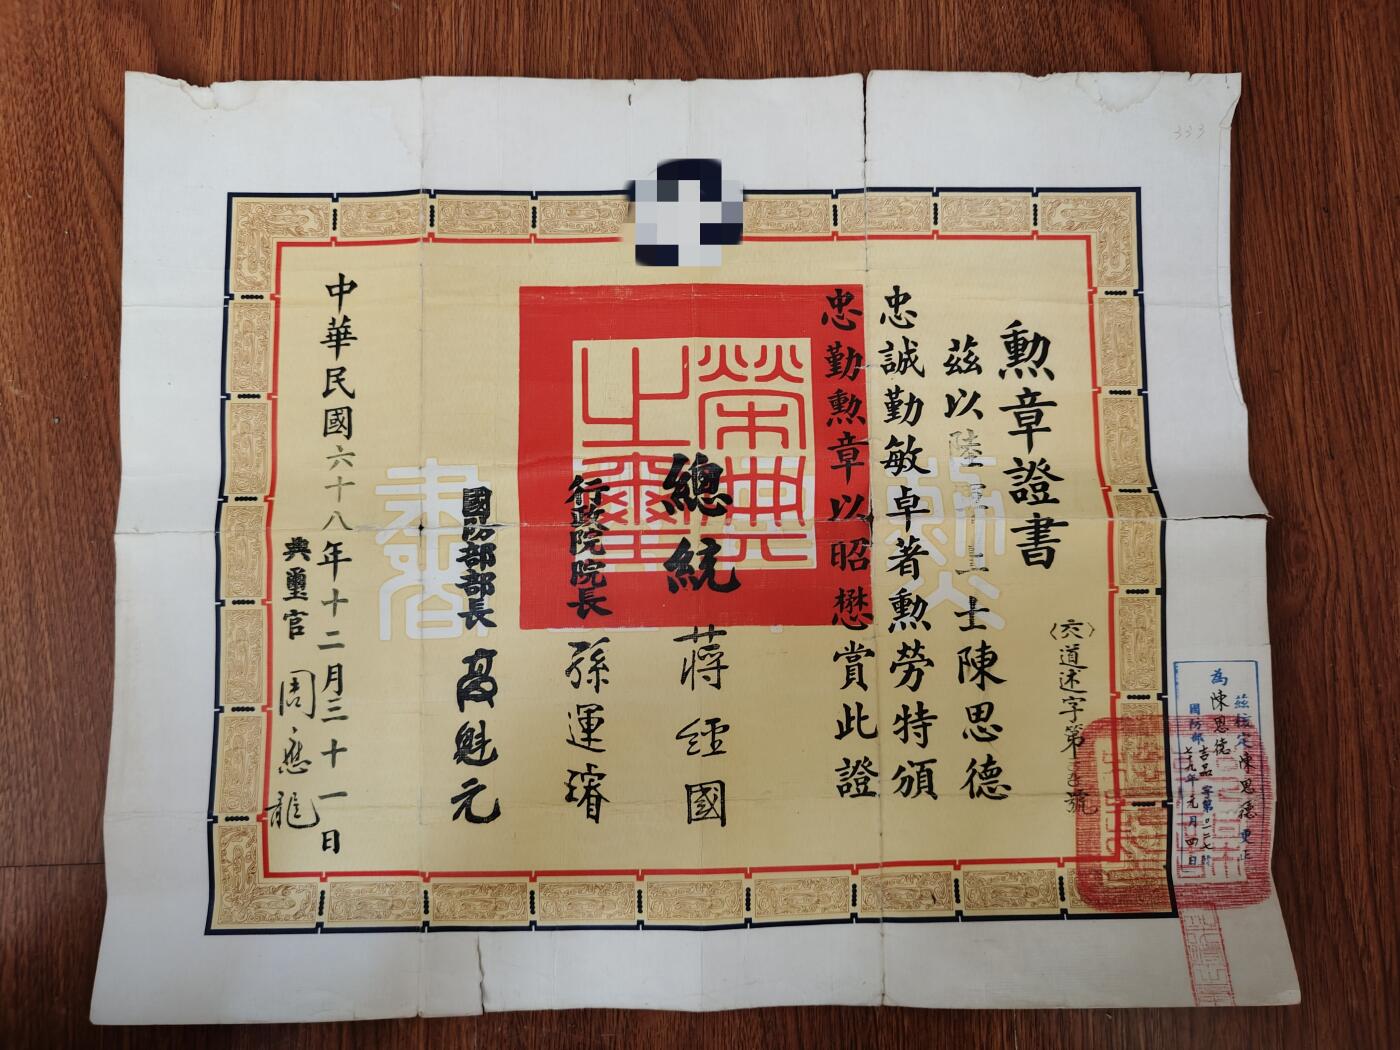 333
勲章證書
茲以陸軍上士陳思德
忠誠勤敏卓著勲勞特頒
忠勤勲章以昭懋賞此證
道述字第
號
榮典
之璽
總統 蔣經國
行政院院長 孫運璿
國防部部長 高魁元
中華民國六十八年十二月三十一日
典璽官 周應龍
茲核定陳思德更正
為陳思德
國防部
七九年元月四日